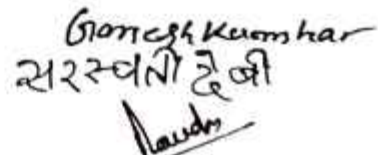 Ganesh Kumhar
सरस्वती देवी